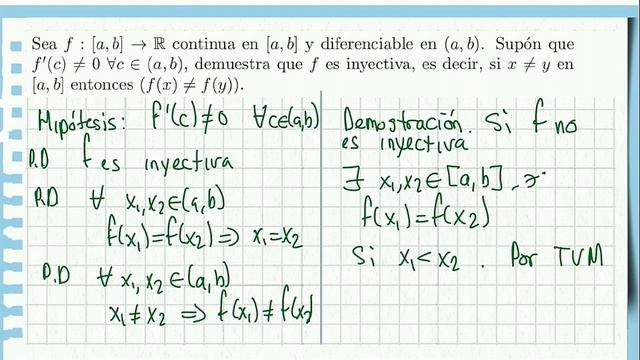 Sea f : [a, b] → ℝ continua en [a, b] y diferenciable en (a, b). Supón que
f′(c) ≠ 0 ∀c ∈ (a, b), demuestra que f es inyectiva, es decir, si x ≠ y en
[a, b] entonces (f(x) ≠ f(y)).
Hipótesis: f'(c)≠0 ∀c∈(a,b)
P.D f es inyectiva
P.D ∀ x₁,x₂∈(a,b)
f(x₁)=f(x₂) ⇒ x₁=x₂
P.D ∀ x₁,x₂∈(a,b)
x₁≠x₂ ⇒ f(x₁)≠f(x₂
Demostración. Si f no
es inyectiva
∃ x₁,x₂∈[a,b],
f(x₁)=f(x₂)
Si x₁<x₂. Por TVM